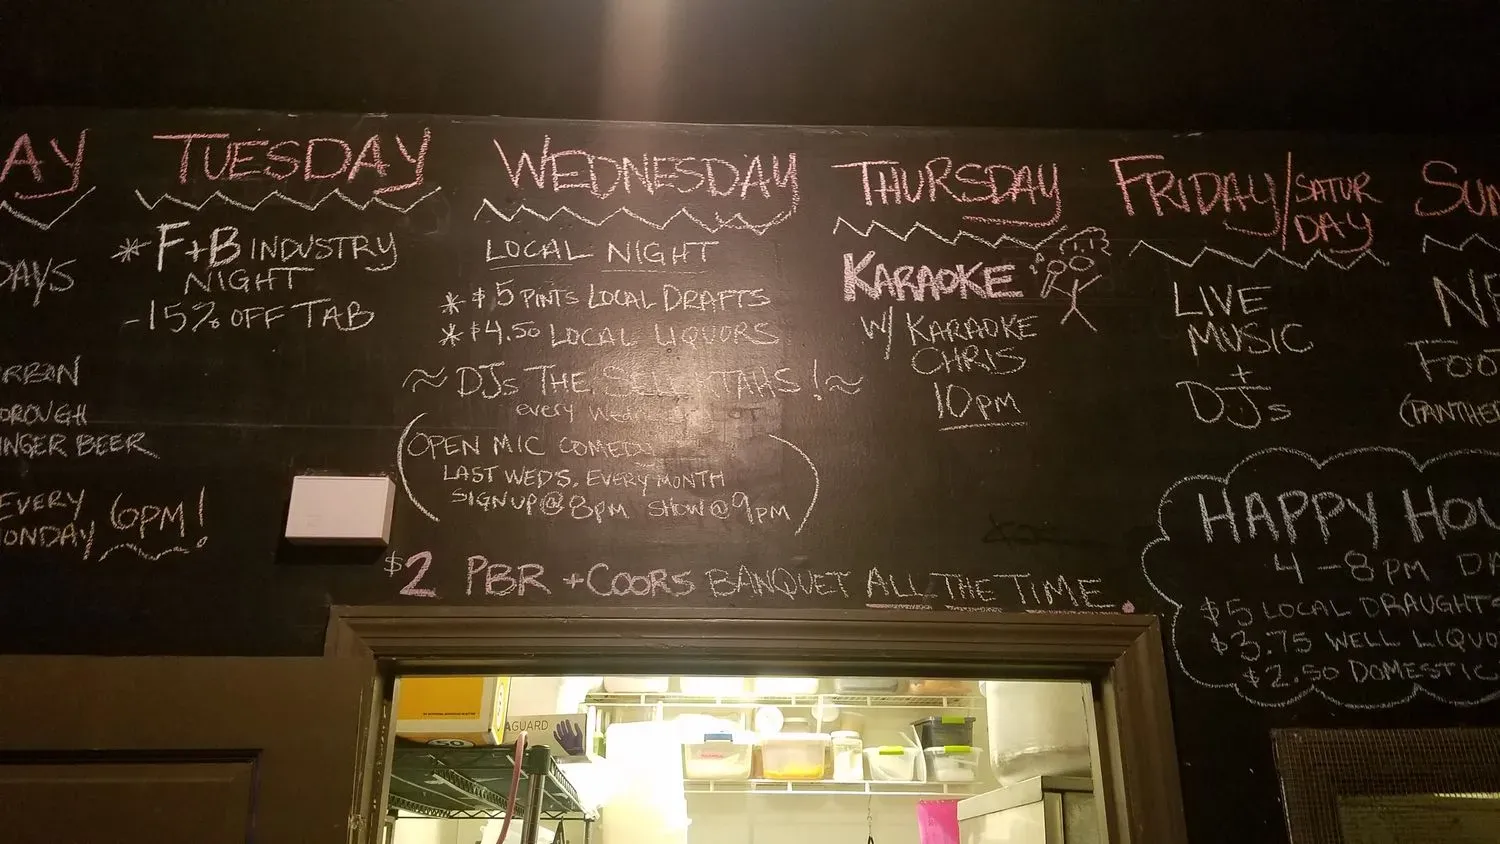 AY
DAYS
RBON
OROUGH
INGER BEER
EVERY
ONDAY 6PM!
TUESDAY
* F+B INDUSTRY
NIGHT
-15% OFF TAB
WEDNESDAY
LOCAL NIGHT
* $5 PINTS LOCAL DRAFTS
* $4.50 LOCAL LIQUORS
~ DJs THE SELEKTAHS! ~
every
(OPEN MIC COMEDY
LAST WED'S. EVERY MONTH
SIGNUP@8PM SHOW@9PM)
THURSDAY
KARAOKE
W/ KARAOKE
CHRIS
10PM
FRIDAY/SATUR
DAY
LIVE
MUSIC
+
DJs
SUN
NF
FOOT
(PANTHE
$2 PBR + COORS BANQUET ALL THE TIME.
HAPPY HOU
4-8PM DA
$5 LOCAL DRAUGHTS
$3.75 WELL LIQUO
$2.50 DOMESTIC
AGUARD
50